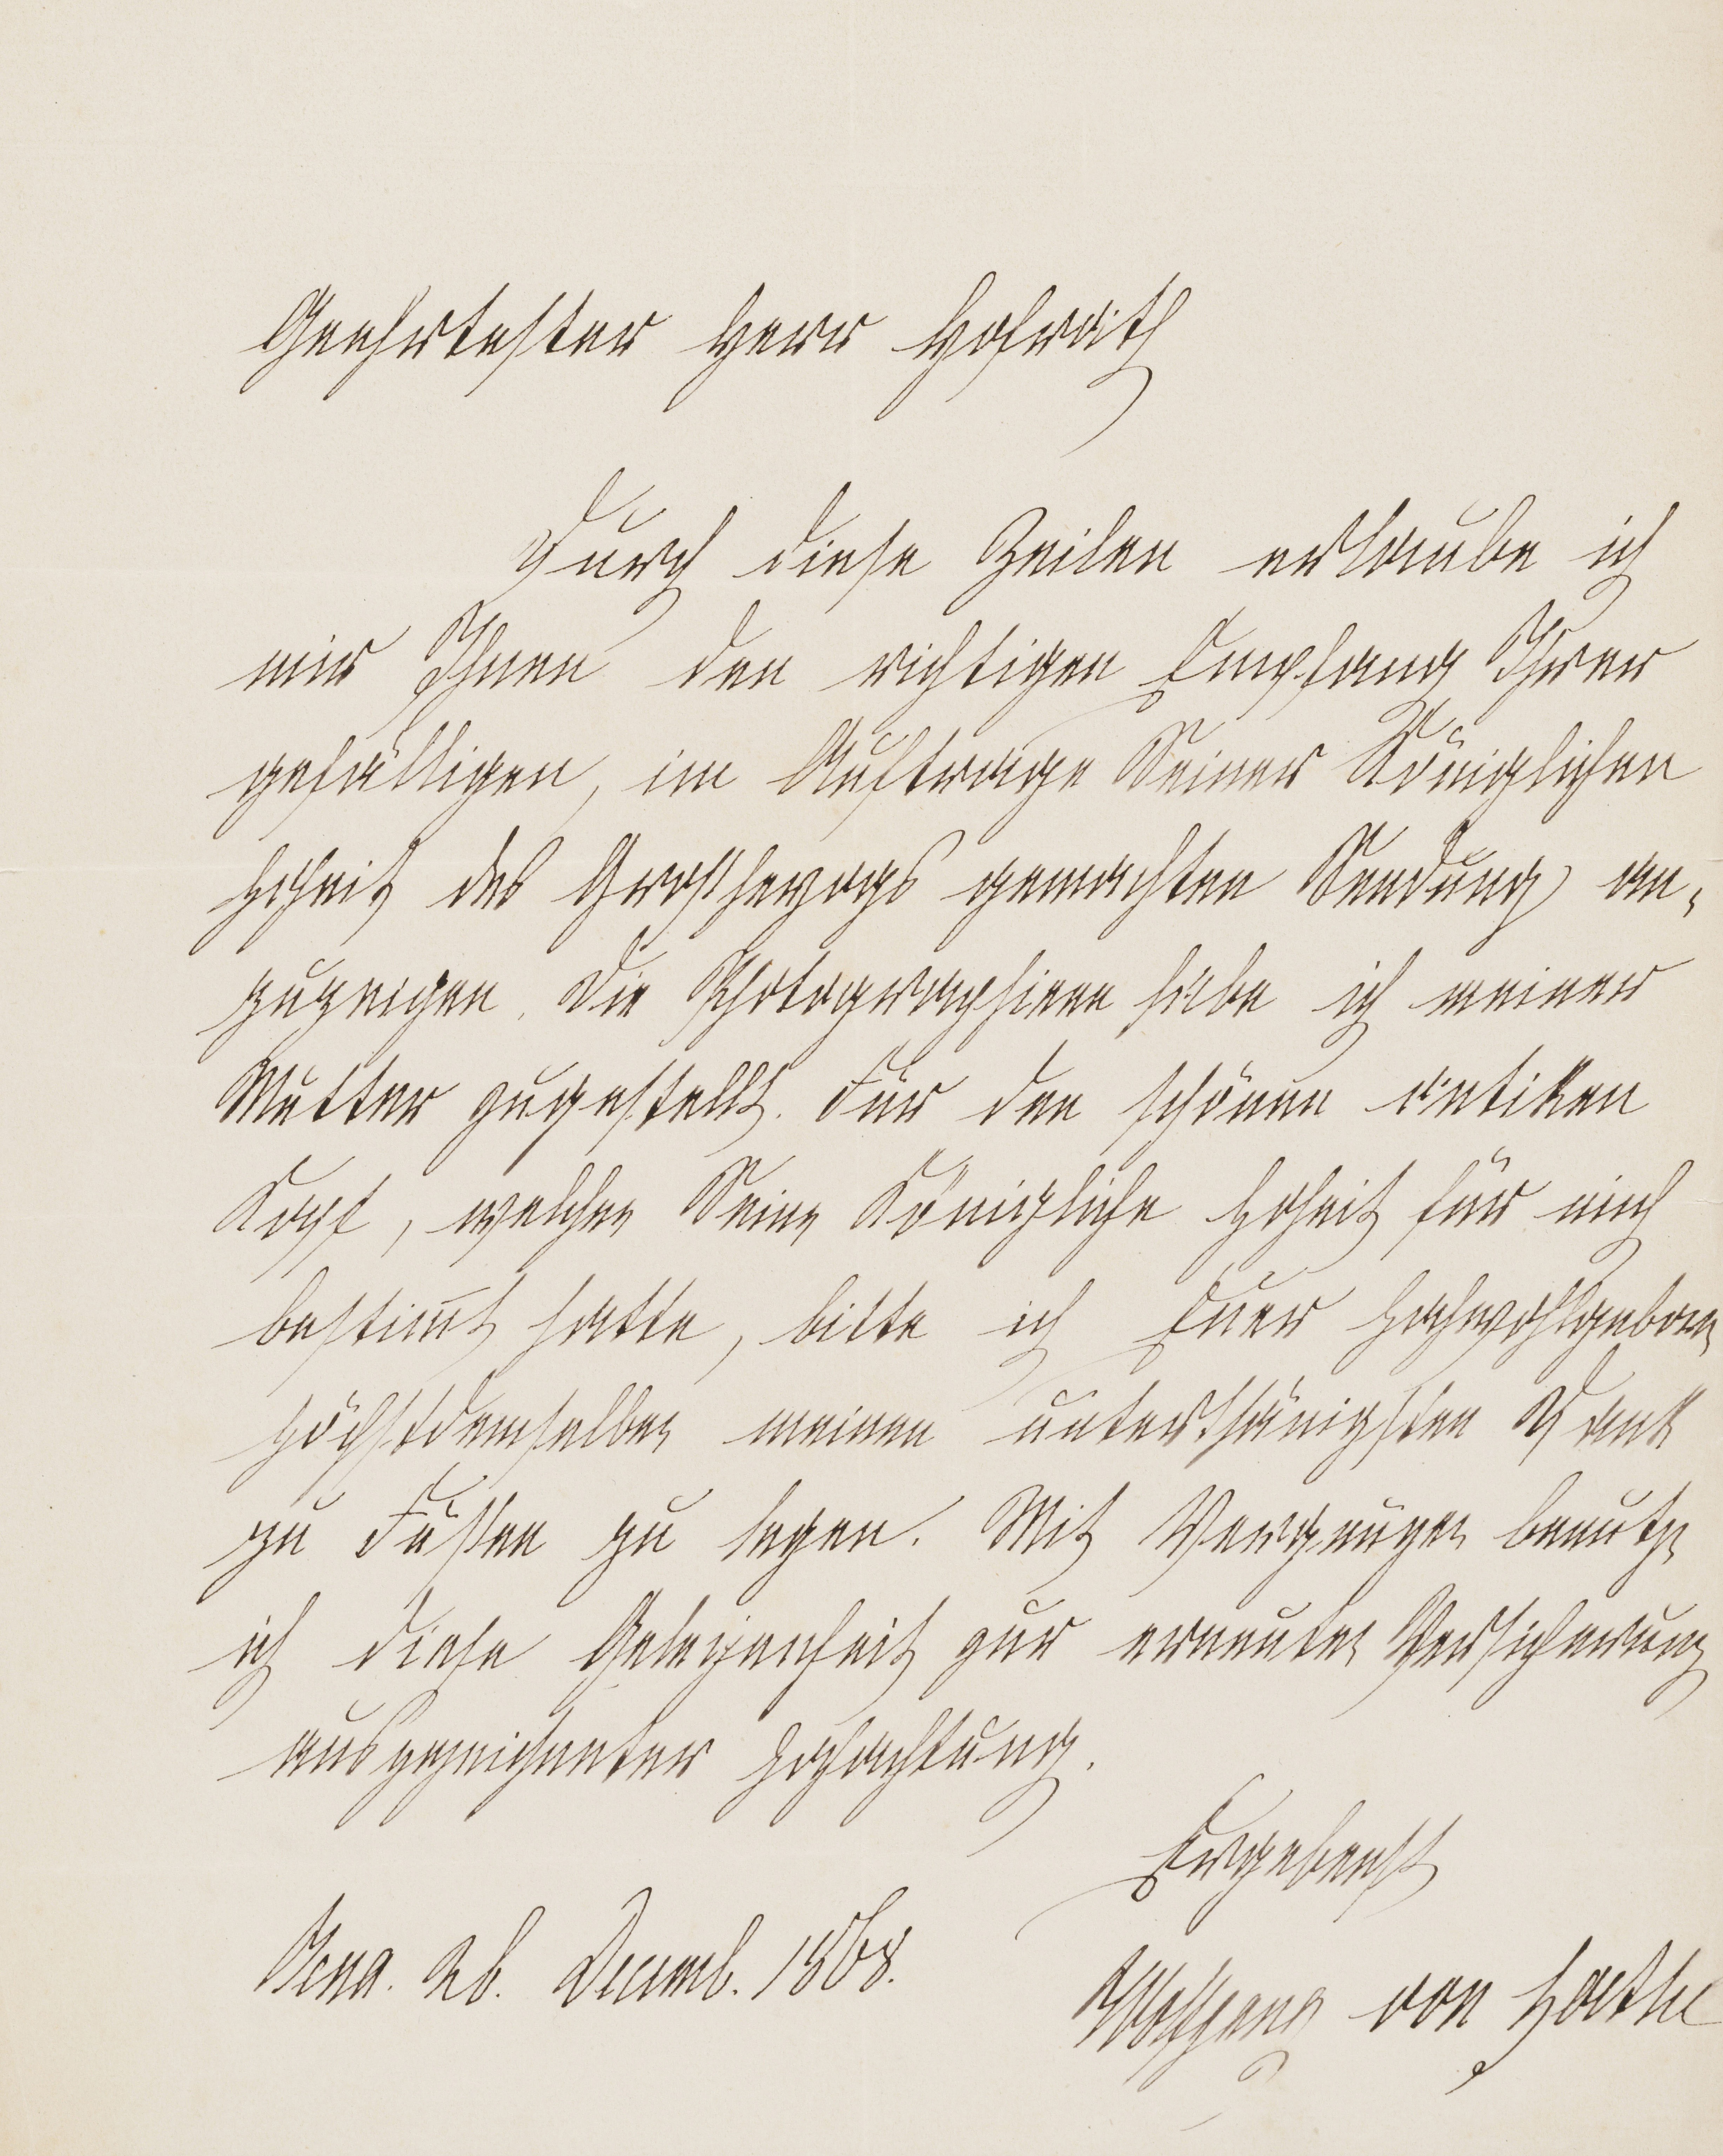 Geehrtester Herr Hofrath
Durch diese Zeilen erlaube ich
mir Ihnen den richtigen Empfang Ihrer
gefälligen, im Auftrage Seiner Königlichen
Hoheit des Großherzogs gemachten Sendung an-
zuzeigen. Die Photographieen habe ich meiner
Mutter zugestellt. Für den schönen antiken
Kopf, welchen Seine Königliche Hoheit für mich
bestimt hatte, bitte ich Euer Hochwohlgeboren
Höchstdemselben meinen unterthänigsten Dank
zu Füßen zu legen. Mit Vergnügen benutze
ich diese Gelegenheit zur erneuten Versicherung
ausgezeichneter Hochachtung.
Ergebenst
Jena. 26. Decemb. 1868.
Wolfgang von Goethe